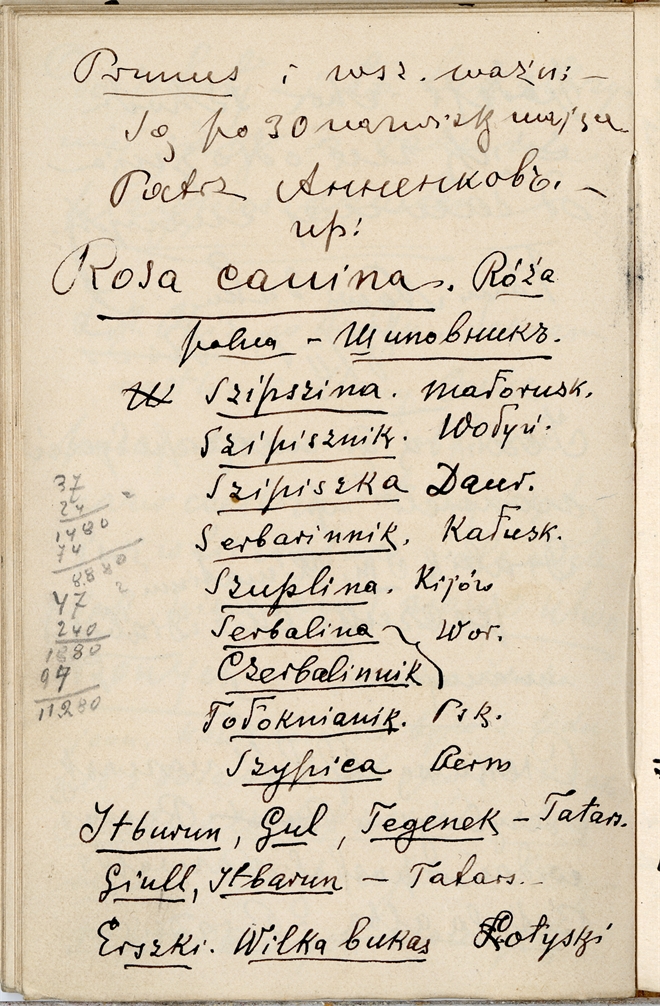 Prunus i wsz. ważn: –
Są po 30 nazwisk mają
Patrz Анненковъ. –
np:
Rosa canina. Róża
polna – Шиповникъ.
Szipszina. małorusk.
Szipisznik. Wołyń.
Szipiszka Daur.
Serbarinnik. Kałuzk.
Szuplina. Kijów
Serbalina
Wor.
Czerbalinnik
Tołoknianik. Psk.
Szypica Perm
Itburun, Gul, Tegenek – Tatars.
Giull, Itbarun – Tatars. –
Erszki. Wilka bukas Łotyski
37
24
1480
74
8880
47
240
1880
94
11280